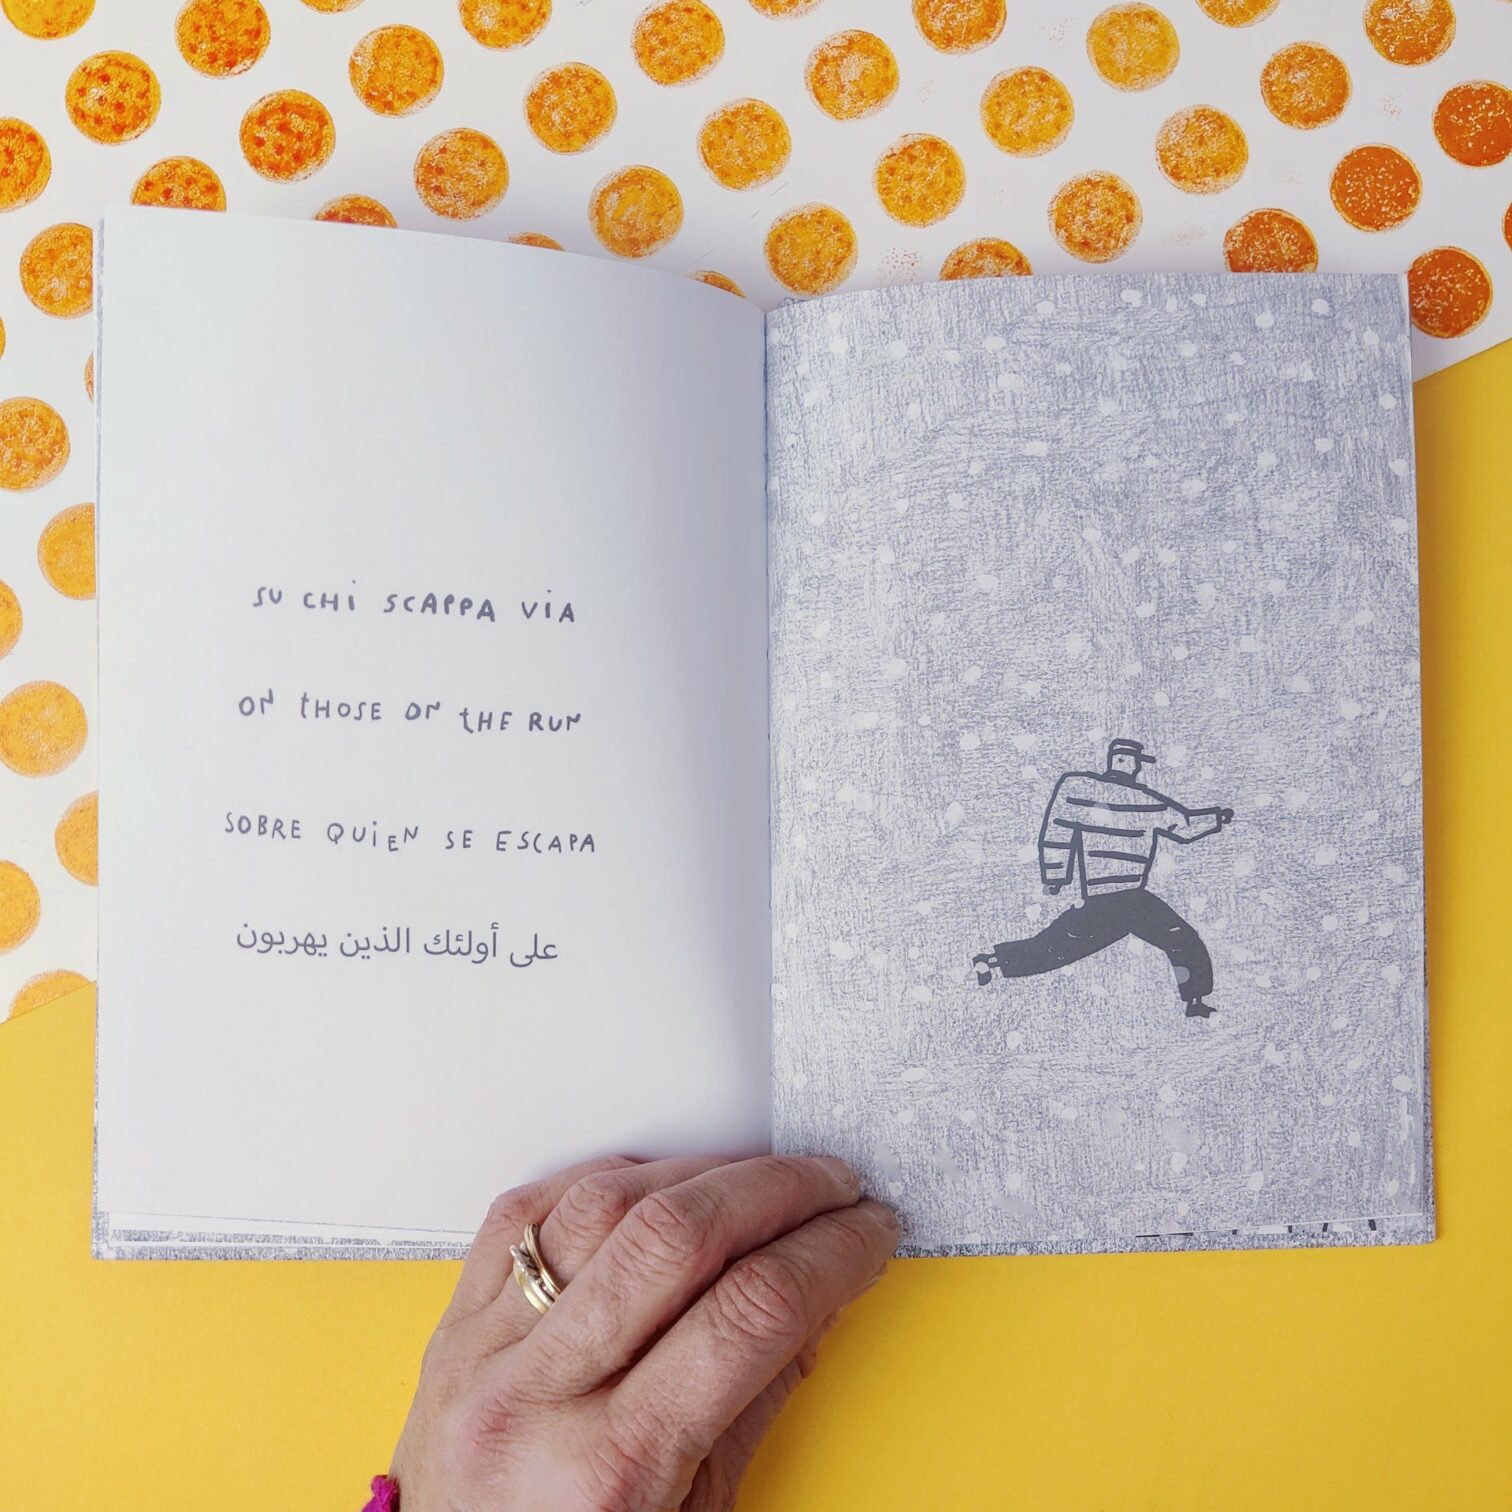 SU CHI SCAPPA VIA
ON THOSE ON THE RUN
SOBRE QUIEN SE ESCAPA
على أولئك الذين يهربون